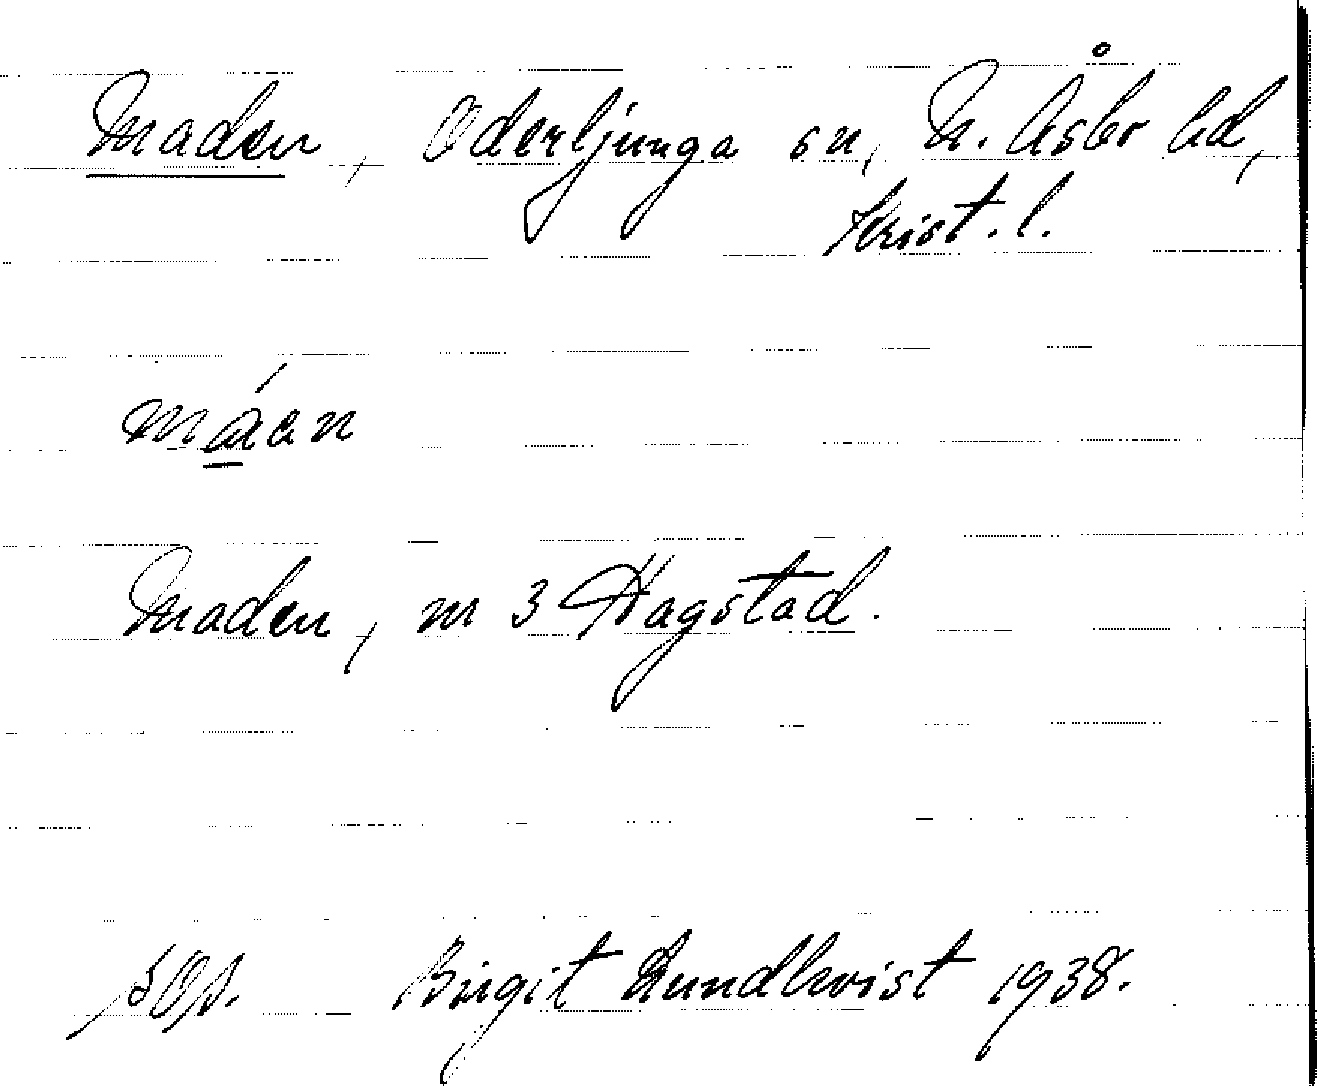 Maden, Oderljunga sn, N. Åsbo hd,
Krist. l.
máan
Maden, m 3 Hagstad.
Birgit Lundkvist 1938.